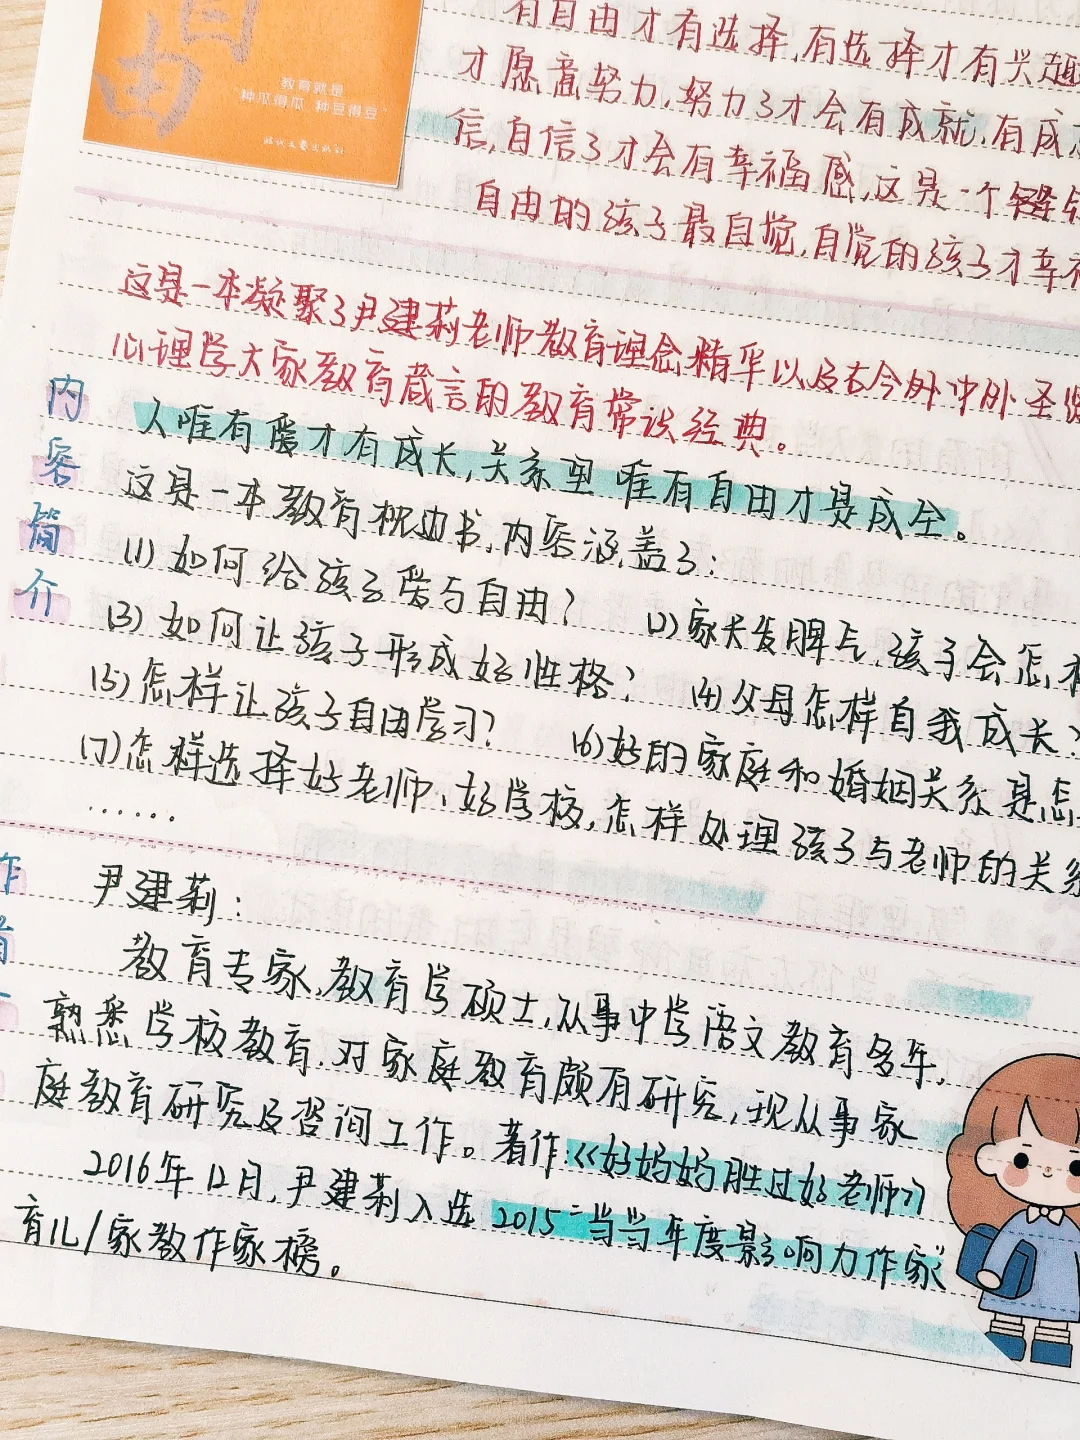 自由
教育就是
“种瓜得瓜 种豆得豆”
时代文艺出版社
有自由才有选择,有选择才有兴趣
才愿意努力,努力了才会有成就,有成
信,自信了才会有幸福感,这是一个
自由的孩子最自觉,自觉的孩子才幸
这是一本凝聚了尹建莉老师教育理念精华以及古今外中外圣贤
心理学大家教育箴言的教育常识经典。
内容简介
人唯有爱才有成长,关系里唯有自由才是成全。
这是一本教育枕边书,内容涵盖了:
(1)如何给孩子爱与自由? (2)家长发脾气,孩子会怎
(3)如何让孩子形成好性格? (4)父母怎样自我成长?
(5)怎样让孩子自由学习? (6)好的家庭和婚姻关系是怎
(7)怎样选择好老师、好学校,怎样处理孩子与老师的关系
......
作者
尹建莉:
教育专家,教育学硕士,从事中学语文教育多年,
熟悉学校教育.对家庭教育颇有研究,现从事家
庭教育研究及咨询工作。著作:《好妈妈胜过好老师》
2016年12月,尹建莉入选2015“当当年度影响力作家”
育儿/家教作家榜。